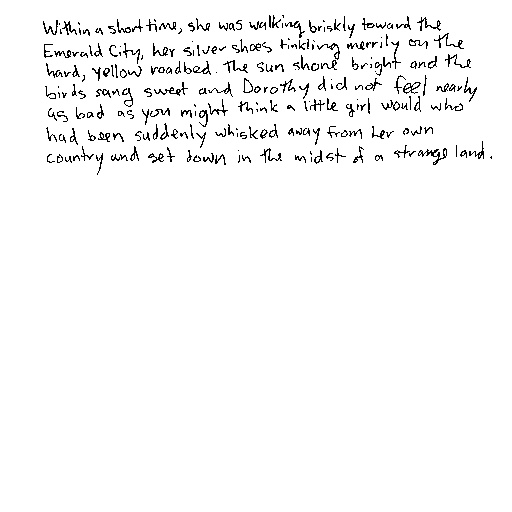 Within a short time, she was walking briskly toward the
Emerald City, her silver shoes tinkling merrily on the
hard, yellow roadbed. The sun shone bright and the
birds sang sweet and Dorothy did not feel nearly
as bad as you might think a little girl would who
had been suddenly whisked away from her own
country and set down in the midst of a strange land.